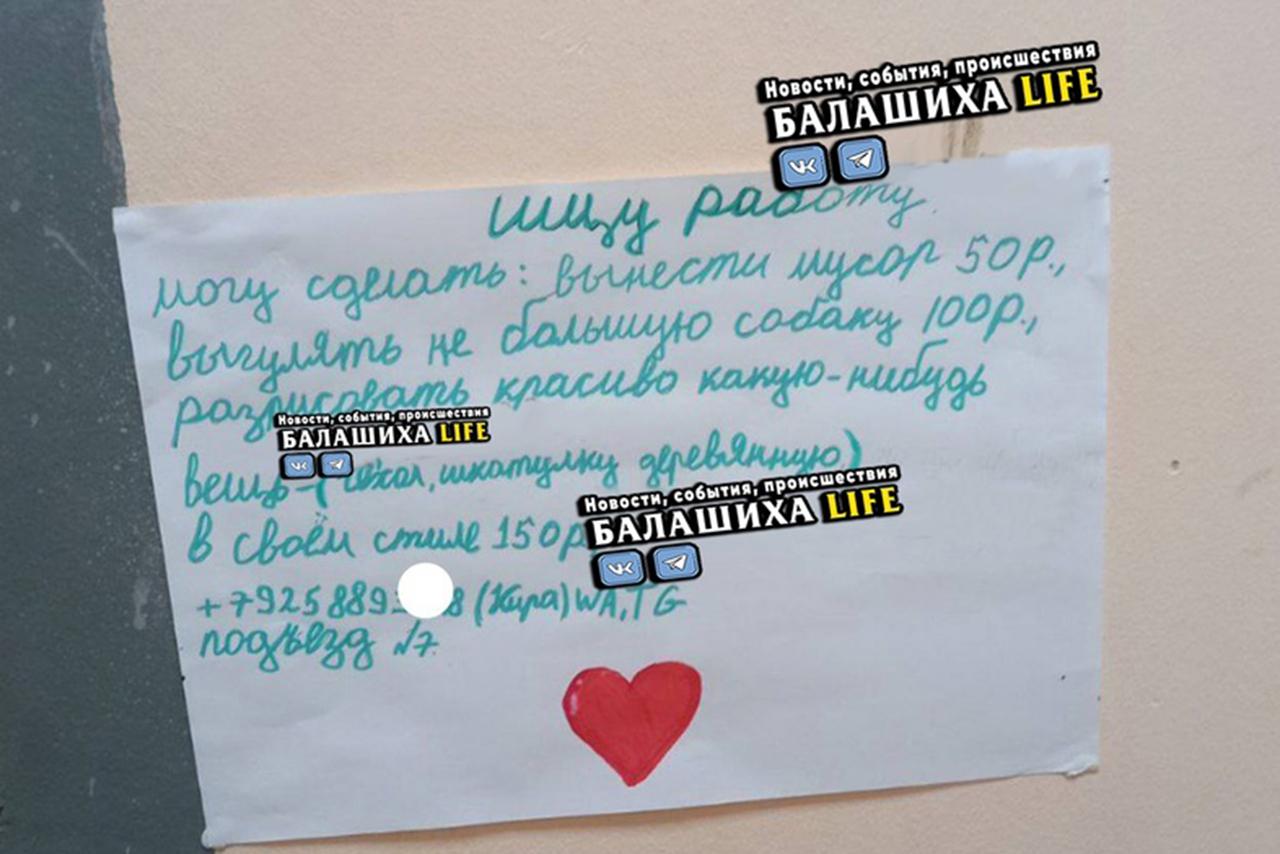 Новости, события, происшествия
БАЛАШИХА LIFE
Ищу работу
могу сделать: вынести мусор 50р.,
выгулять не большую собаку 100р.,
разрисовать красиво какую-нибудь
Новости, события, происшествия
БАЛАШИХА LIFE
вещь-(чехол, шкатулку деревянную)
Новости, события, происшествия
БАЛАШИХА LIFE
в своём стиле 150р
+7925889 8 (Кира) WA, TG
подъезд №7